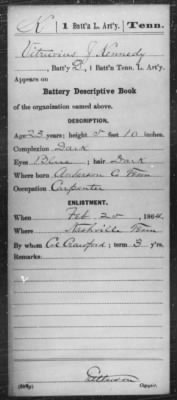 K | 1 Batt'n L. Art'y. | Tenn.
Vitruvius J Kennedy
, Batt'y D, 1 Batt'n Tenn. L. Art'y.
Appears on
Battery Descriptive Book
of the organization named above.
DESCRIPTION.
Age 23 years; height 5 feet 10 inches.
Complexion Dark
Eyes Blue ; hair Dark
Where born Anderson Co Tenn
Occupation Carpenter
ENLISTMENT.
When Feb 20 , 1864.
Where Nashville Tenn
By whom Crawford ; term 3 y'rs.
Remarks:
Copyist.